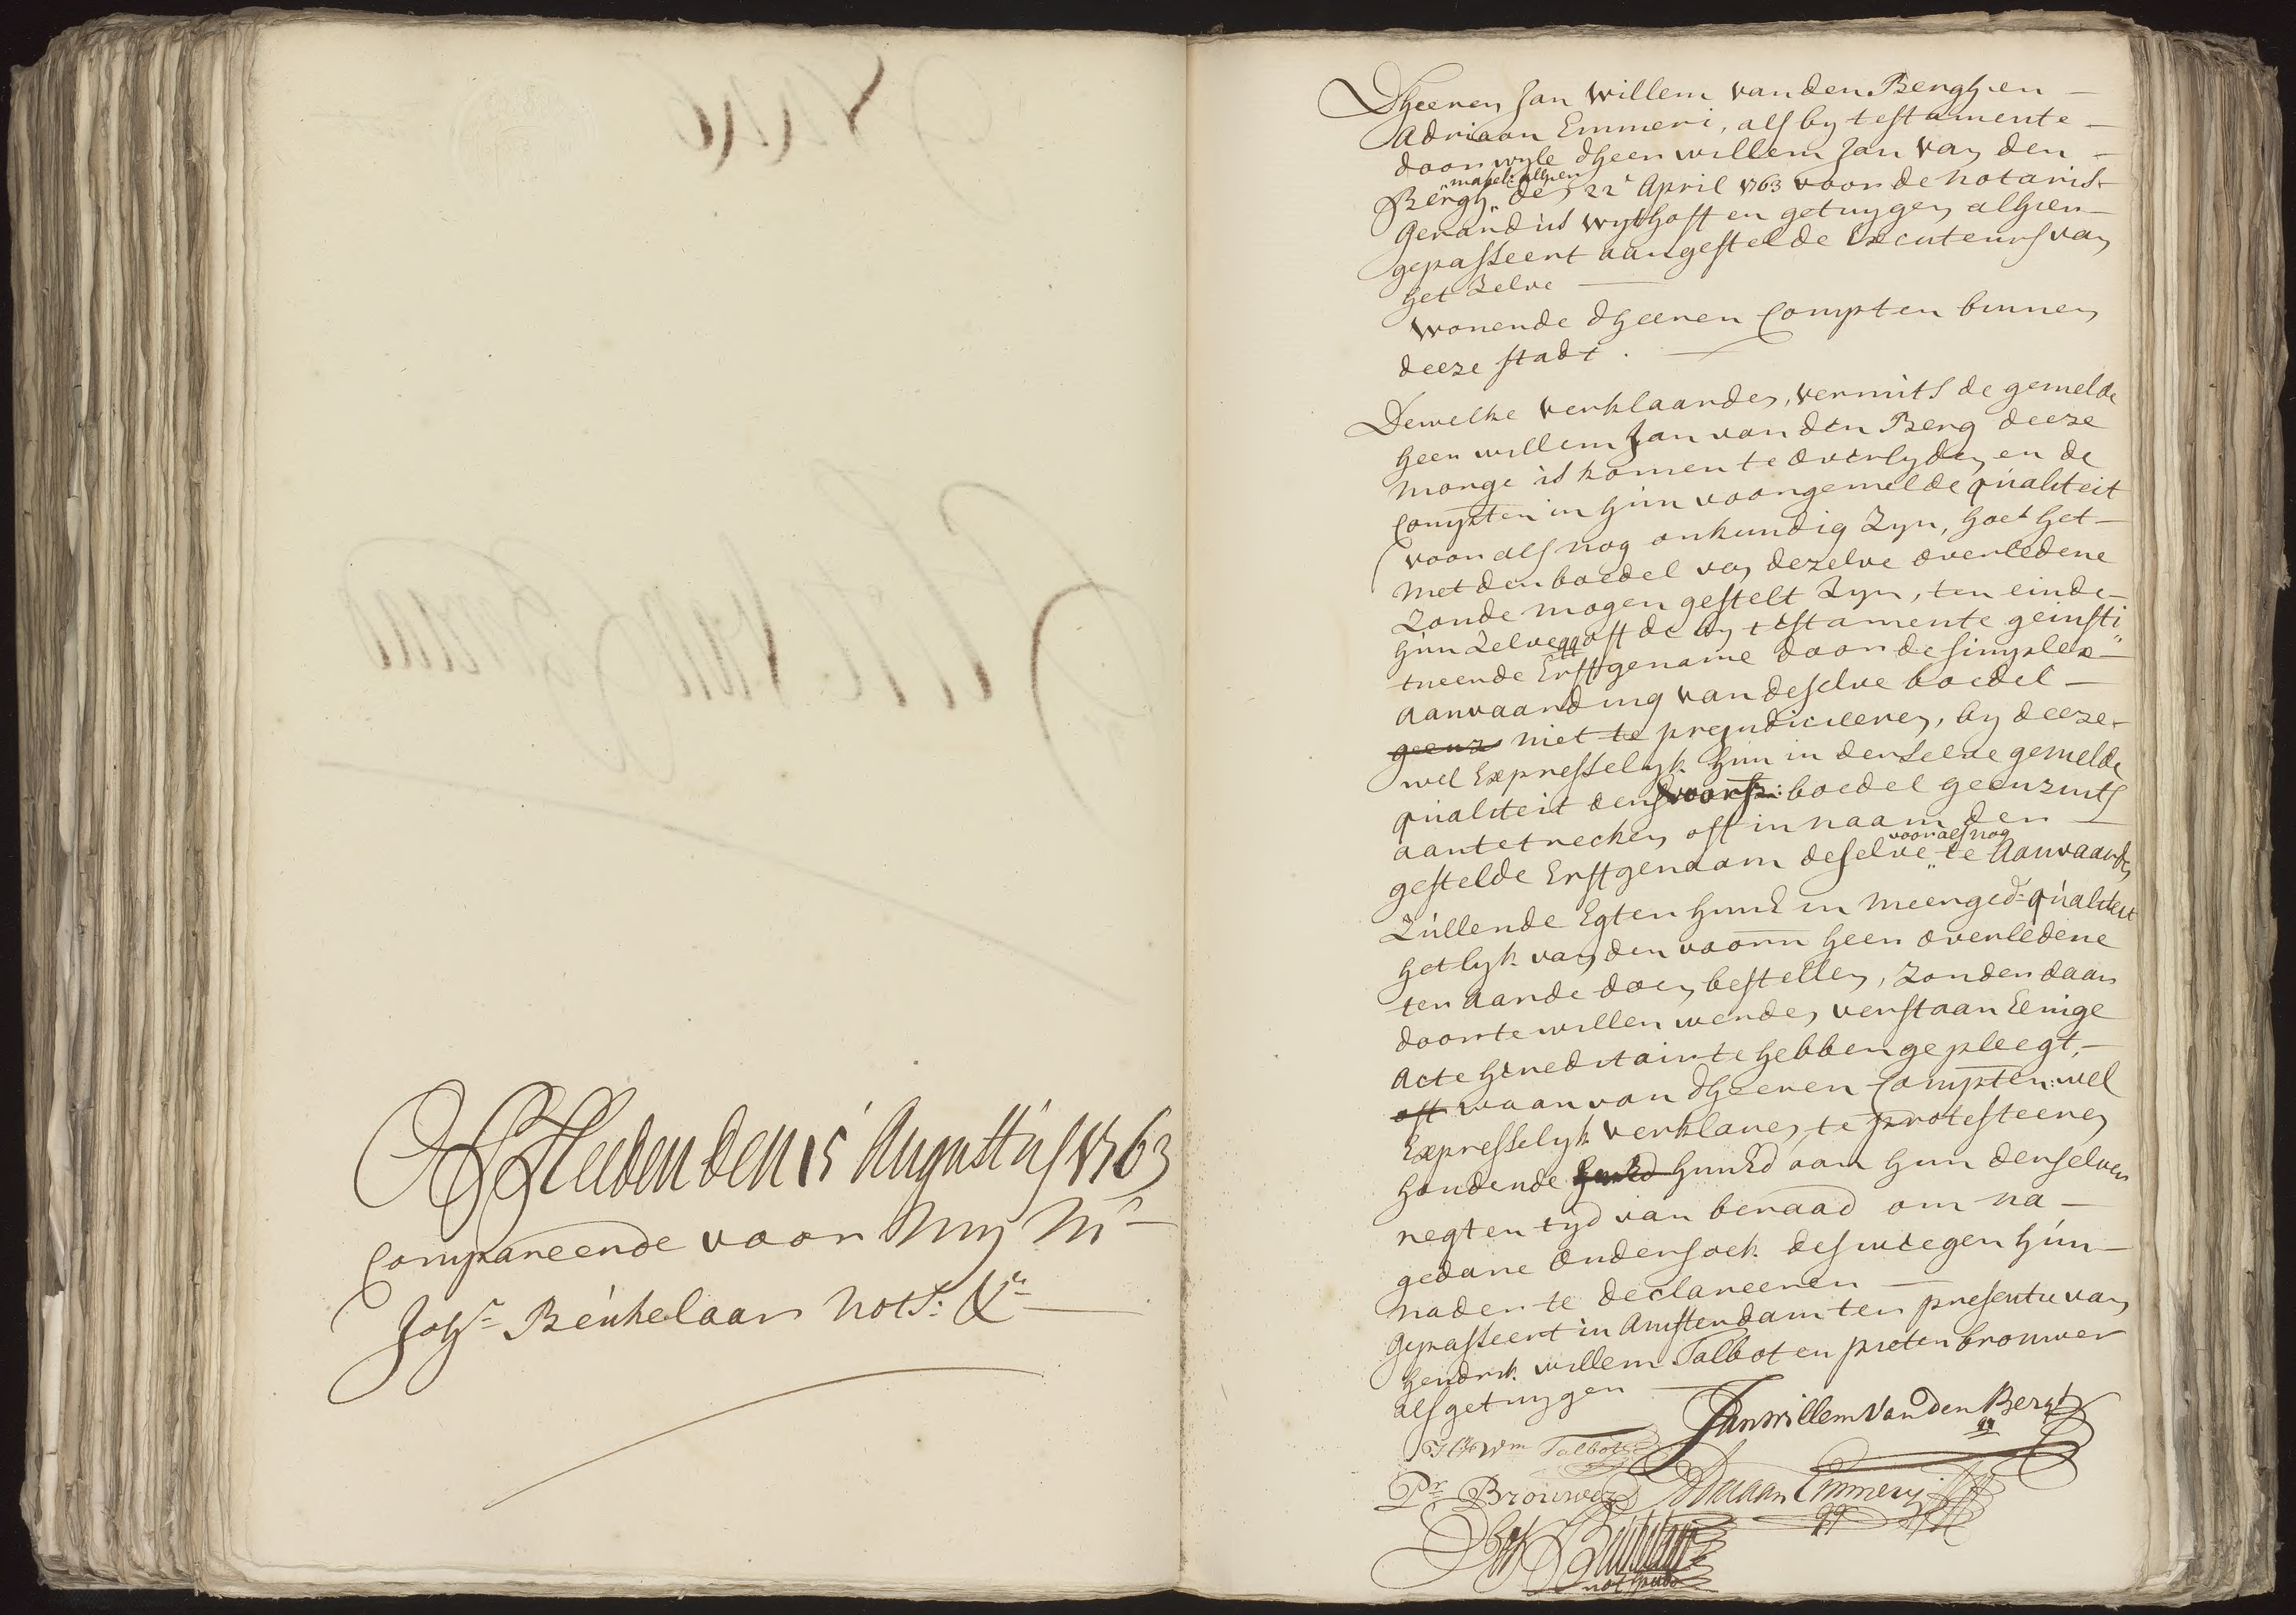 Heeden den 15 Augustus 1763
Compareerde voor My Mr
Johs Beukelaar Nots: &a
Dheeren Jan Willem van den Bergh en
Adriaan Emmeri, als by testamente
door wyle dheer Willem Jan van den
makel: alhier
Bergh den 22e April 1763 voor de Notaris
Gerardus Wythoff en getuygen alhier
gepasseert aangestelde Executeurs van
het zelve
Wonende dheeren Compten binnen
deeze stadt.
Dewelke verklaarden, vermits de gemelde
heer Willem Jan van den Berg deeze
morge is komen te overlyden, en de
Compten in hun voorgemelde qualiteit
voor als nog onkundig Zyn, hoe het
met den boedel van dezelve overledene
Zoude mogen gestelt Zyn, ten einde
hun Zelve qq oft de by testamente geinsti
tueerde Erffgename door de simplex
aanvaarding van deselve boedel
geenz niet te prejudicieeren, by deeze
wel Expresselyk hun in derselve gemelde
qualiteit den voorsz: boedel geenzints
aan te trecken oft in naam der
voor als nog
gestelde Erffgenaam deselve te Aanvaarden
Zullende Egter hunE in meerged: qualiteit
het lyk van den voorn heer overledene
ter aarde doen bestellen, zonder daar
door te willen werden verstaan Eenige
acte hereditair te hebben gepleegt,
oft waar van dheeren Compten: wel
Expresselyk verklaren te protesteeren
houdende hunEd hunEd aan hun denselven
regten tyd van beraad om na
gedane ondersoek deswegen hun
nader te declareeren
Gepasseert in Amsterdam ter presentie van
Hendrik Willem Talbot en Pieter Brouwer
als getuygen
Jan Willem Van den Bergh
qq
Hk Wm Talbot
Pr Brouwer
Adriaan Emmery
qq
Joh Beukelaar
not publ